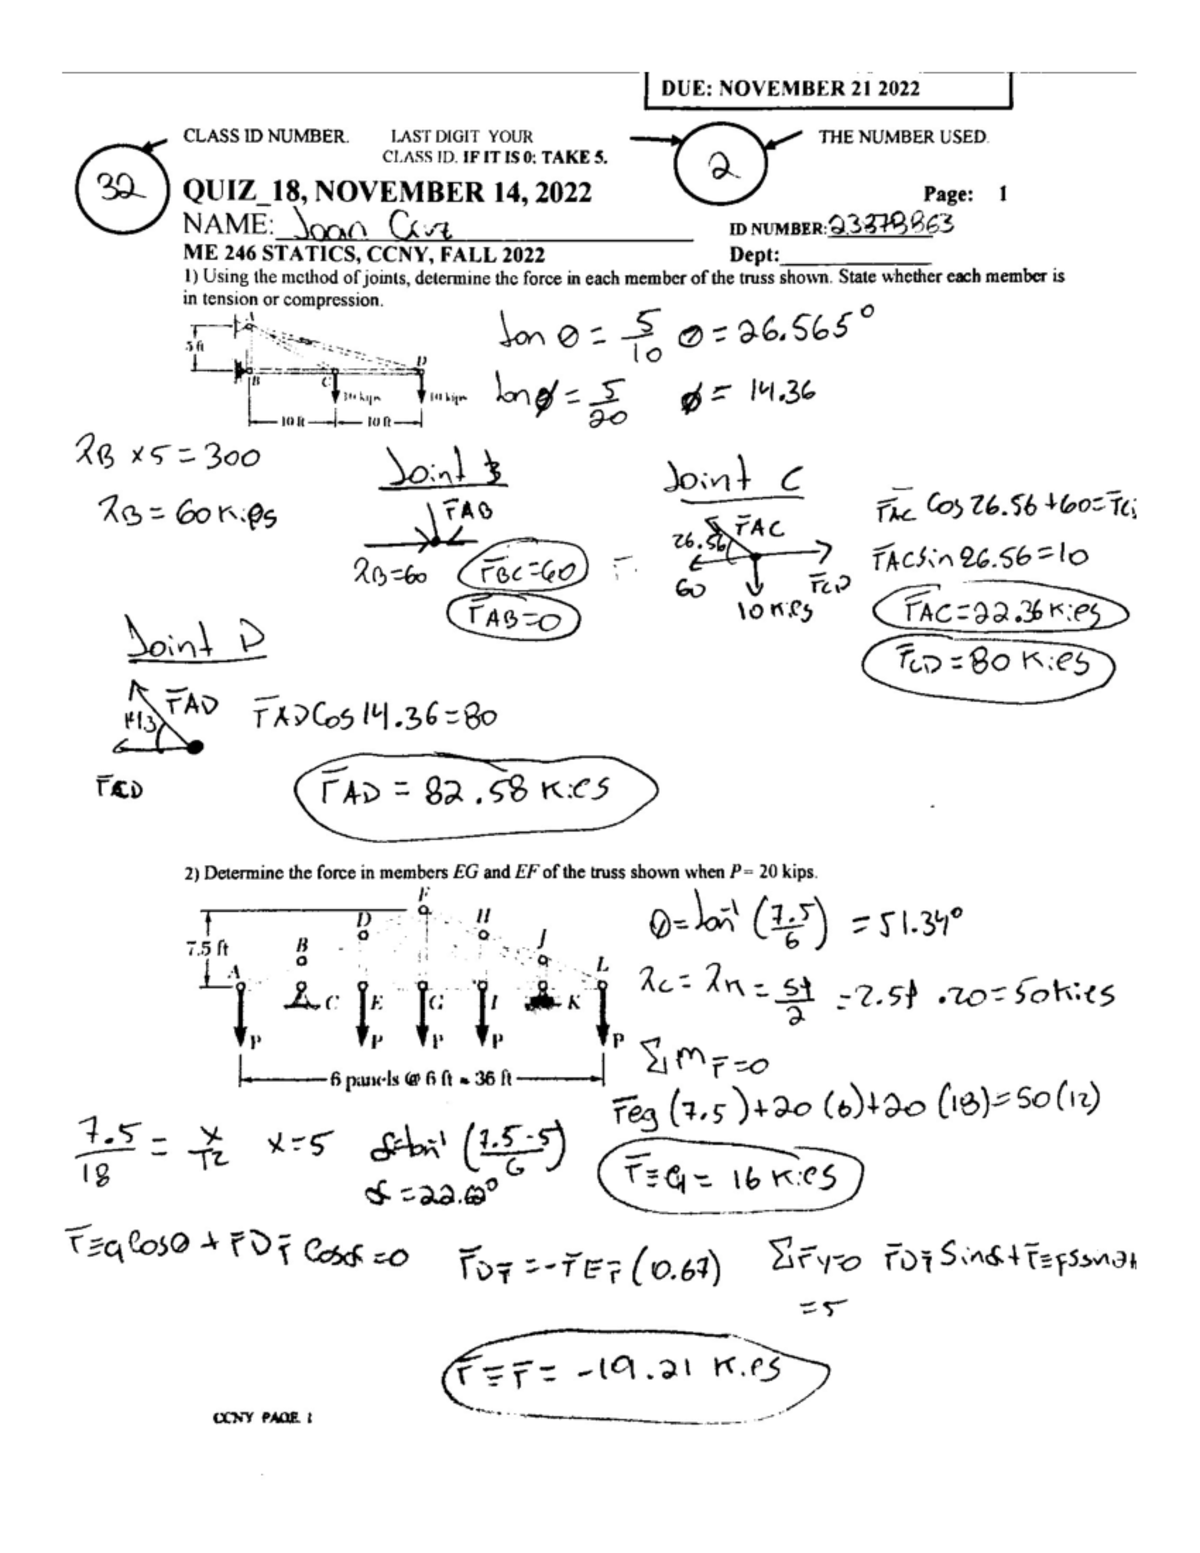 DUE: NOVEMBER 21 2022
CLASS ID NUMBER. LAST DIGIT YOUR THE NUMBER USED.
CLASS ID. IF IT IS 0; TAKE 5.
32
2
QUIZ_18, NOVEMBER 14, 2022 Page: 1
NAME: Joan Cruz ID NUMBER: 23378863
ME 246 STATICS, CCNY, FALL 2022 Dept:
1) Using the method of joints, determine the force in each member of the truss shown. State whether each member is
in tension or compression.
A
5 ft
B C D
10 kips 10 kips
10 ft 10 ft
tan θ = 5/10 θ = 26.565°
tan ϕ = 5/20 ϕ = 14.36
RB × 5 = 300
RB = 60 kips
Joint B
FAB
RB=60
FBC=60
FAB=0
Joint C
26.56 FAC
60 FCD
10 kips
FAC Cos 26.56 + 60 = FC
FAC Sin 26.56 = 10
FAC = 22.36 kips
FCD = 80 kips
Joint D
FAD
14.3
FCD
FAD Cos 14.36 = 80
FAD = 82.58 kips
2) Determine the force in members EG and EF of the truss shown when P= 20 kips.
F
D H
7.5 ft B J
A L
C E G I K
P P P P P
6 panels @ 6 ft = 36 ft
θ = tan⁻¹ (7.5/6) = 51.34°
= 50 kips
ΣM F = 0
Feg (7.5) + 20 (6) + 20 (18) = 50 (12)
FEG = 16 kips
7.5/18 = x/12 x = 5 α = tan⁻¹ (7.5-5/6)
α = 22.62°
Cosθ + FDF Cosα = 0 FDF = -FEF (0.67) ΣFy=0 FDF Sinα +
= 5
FEF = -19.21 kips
CCNY PAGE 1